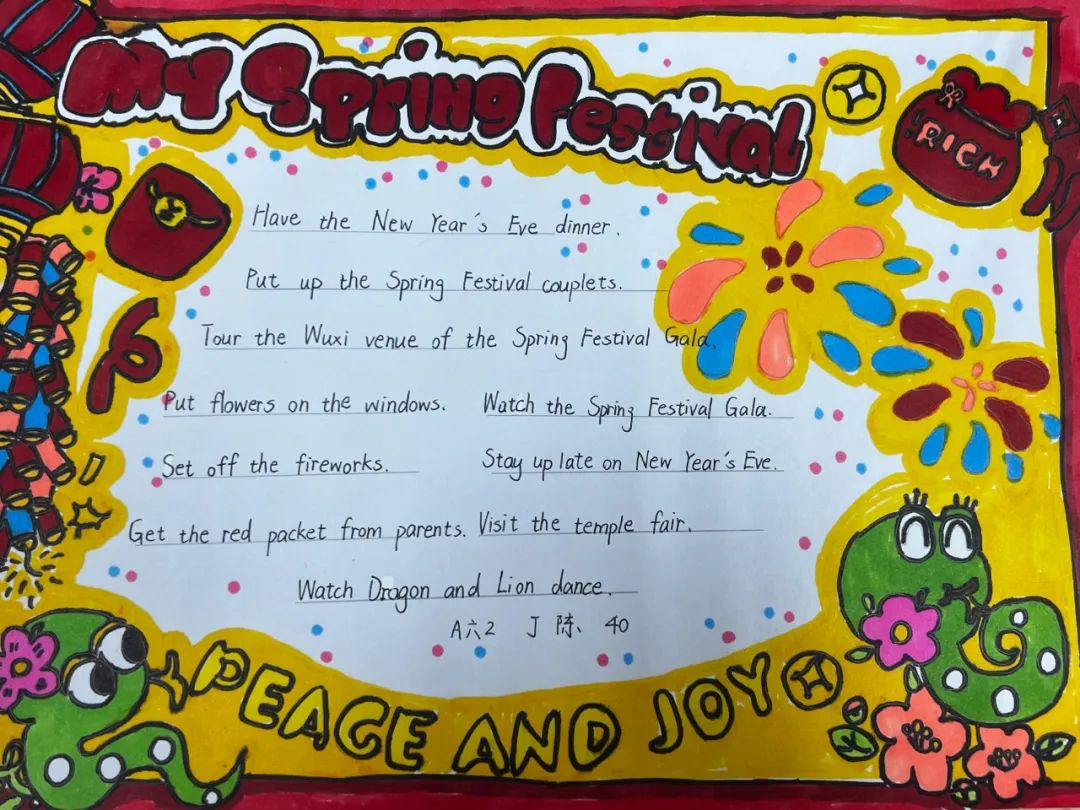 My Spring Festival
RICH
Have the New Year's Eve dinner.
Put up the Spring Festival couplets.
Tour the Wuxi venue of the Spring Festival Gala.
Put flowers on the windows. Watch the Spring Festival Gala.
Set off the fireworks. Stay up late on New Year's Eve.
Get the red packet from parents. Visit the temple fair.
Watch Dragon and Lion dance.
A六2 J 陈、 40
PEACE AND JOY